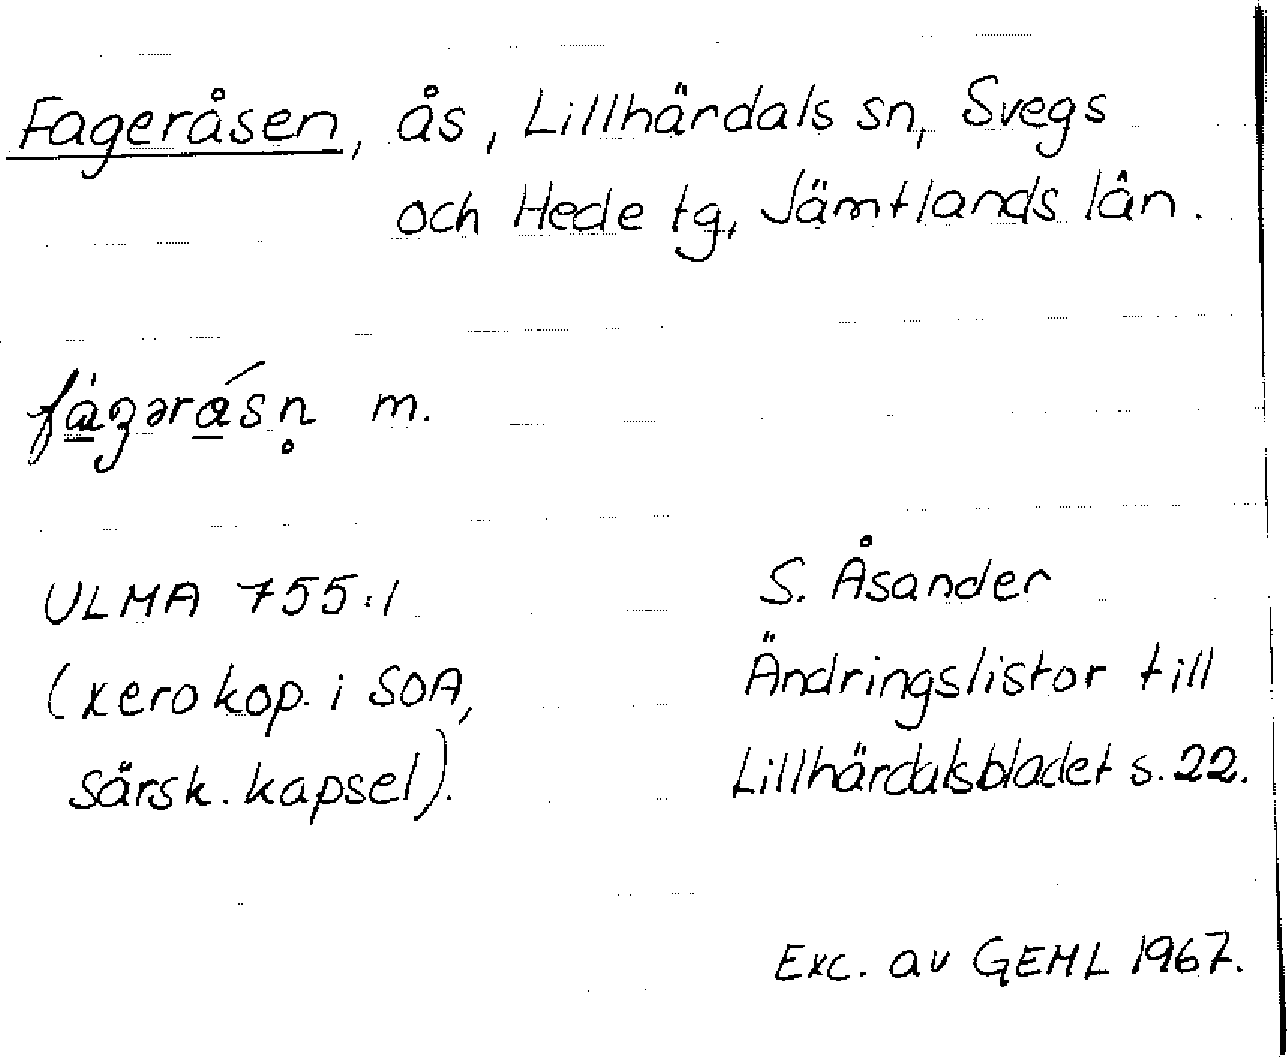 Fageråsen, ås, Lillhärdals sn, Svegs
och Hede tg, Jämtlands län.
m.
ULMA 755:1
(xerokop. i SOA,
särsk. kapsel).
S. Åsander
Ändringslistor till
Lillhärdalsbladet s. 22.
Exc. av GEML 1967.